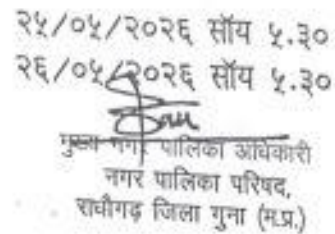 २५/०५/२०२६ सॉय ५.३०
२६/०५/२०२६ सॉय ५.३०
मुख्य नगर पालिका अधिकारी
नगर पालिका परिषद,
राघौगढ़ जिला गुना (म.प्र.)